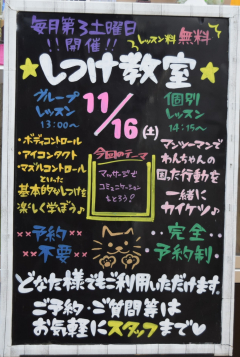 毎月第3土曜日
!!開催!!
レッスン料 無料
★しつけ教室★
11/16(土)
グループ
レッスン
13:00〜
・ボディコントロール
・アイコンタクト
・マズルコントロール
といった
基本的なしつけを
楽しく学ぼう♪
××予約××
不要
今回のテーマ
マッサージで
コミュニケーション
をとろう!
個別
レッスン
14:15〜
マンツーマンで
わんちゃんの
困った行動を
一緒に
カイケツ♪
完全
予約制
どなた様でもご利用いただけます。
ご予約・ご質問等は
お気軽にスタッフまで♡